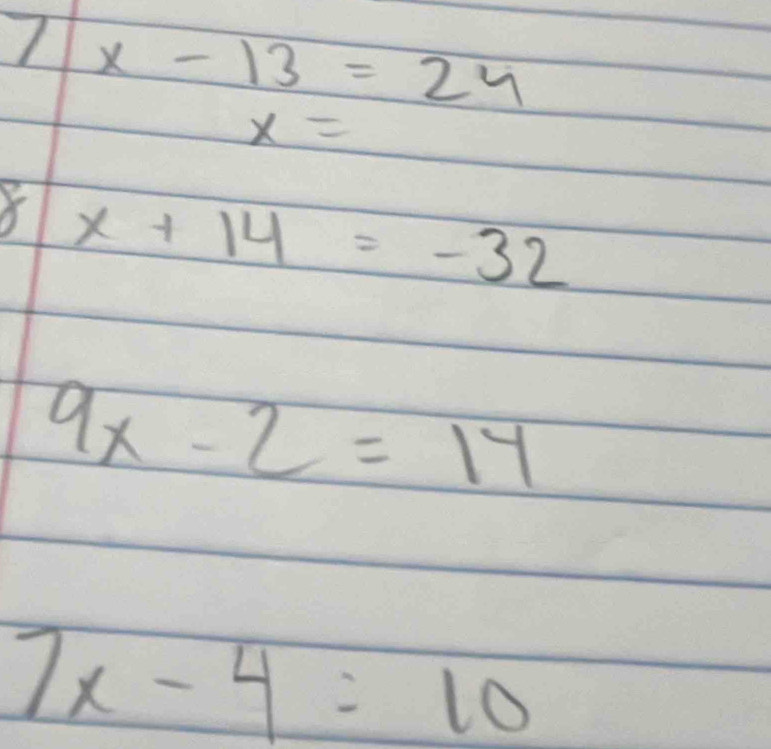 7x - 13 = 24
x =
8x + 14 = -32
9x - 2 = 14
7x - 4 = 10